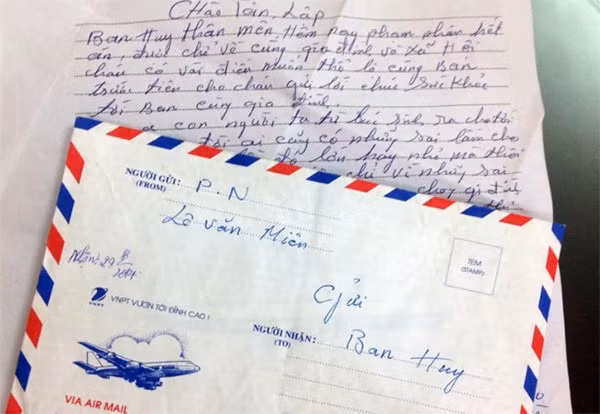 Chào Tân Lập
Ban Huy thân mến. Hôm nay phạm nhân hết
án được chỉ về cùng gia đình và xã hội
cháu có vài điều muốn thổ lộ cùng Ban
trước tiên cho cháu gửi lời chúc sức khỏe
tới Ban cùng gia đình.
con người ta từ lúc sinh ra cho tới
tới ai cũng có những sai lầm cho
lớn hay nhỏ mà thôi
chỉ vì những sai
gia đình
NGƯỜI GỬI: P.N
(FROM)
Lê Văn Miên
Nhận: 29/8/2014
TEM
(STAMP)
VNPT
VNPT VƯƠN TỚI ĐỈNH CAO!
Gửi
NGƯỜI NHẬN: Ban Huy
(TO)
VIA AIR MAIL